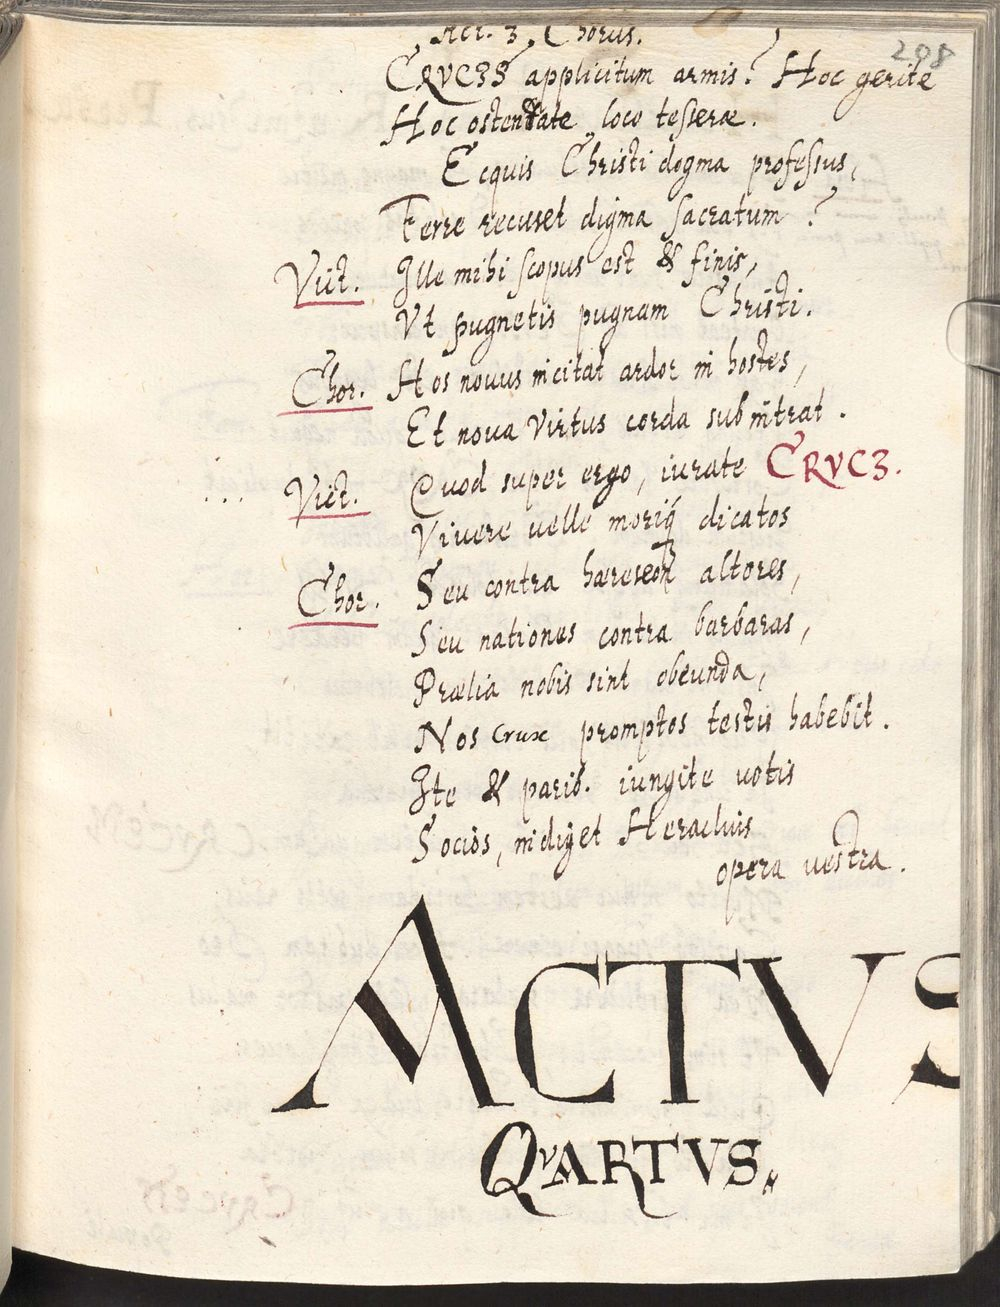 Act. 3, Chorus.
208
CRVCIS applicitum armis? Hoc gerite
Hoc ostentate loco tesseræ.
Ecquis Christi dogma professus,
Ferre recuset digma sacratum?
Vict. Ille mihi scopus est & finis,
Vt pugnetis pugnam Christi.
Chor. Hos nouus incitat ardor in hostes,
Et noua virtus corda subintrat.
Vict. Quod super ergo, iurate CRVCI.
Viuere uelle moriq́ dicatos
Chor. Seu contra hæreseon altores,
Seu nationes contra barbaras,
Prælia nobis sint obeunda,
Nos Crux promptos testis habebit.
Ite & parib. iungite uotis
Socios, indiget Heraclius
opera uestra.
ACTVS
QVARTVS.